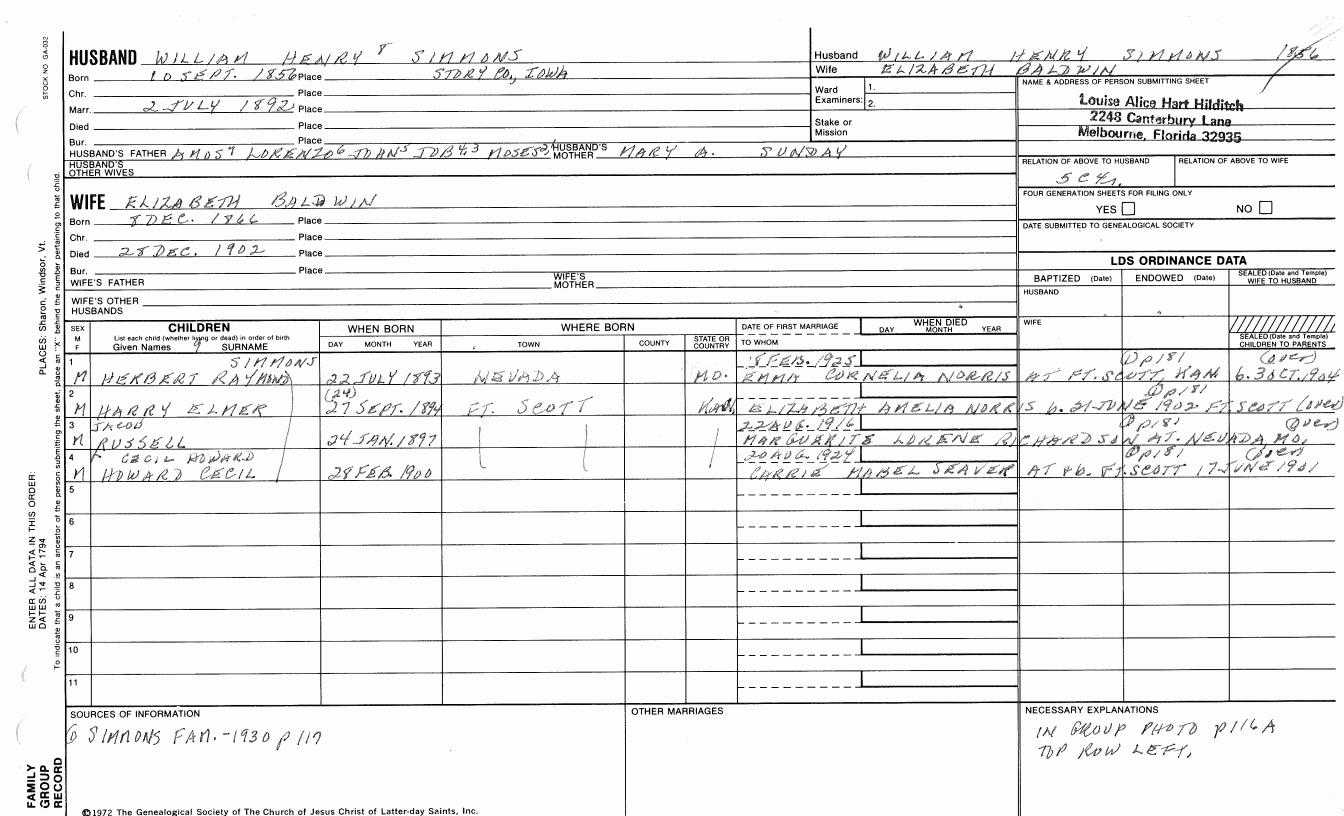 STOCK NO GA-032
HUSBAND WILLIAM HENRY 8 SIMMONS
Born 10 SEPT. 1856 Place STORY CO., IOWA
Chr. Place
Marr. 2 JULY 1892 Place
Died Place
Bur. Place
HUSBAND'S FATHER AMOS7 LORENZO6 JOHN5 JOB4,3 MOSES2,1 HUSBAND'S MOTHER MARY A. SUNDAY
HUSBAND'S OTHER WIVES
WIFE ELIZABETH BALDWIN
Born 8 DEC. 1866 Place
Chr. Place
Died 28 DEC. 1902 Place
Bur. Place
WIFE'S FATHER WIFE'S MOTHER
WIFE'S OTHER HUSBANDS
Husband WILLIAM HENRY SIMMONS 1856
Wife ELIZABETH BALDWIN
Ward Examiners: 1. 2.
Stake or Mission
NAME & ADDRESS OF PERSON SUBMITTING SHEET
Louise Alice Hart Hilditch
2248 Canterbury Lane
Melbourne, Florida 32935
RELATION OF ABOVE TO HUSBAND RELATION OF ABOVE TO WIFE
5C4r.
FOUR GENERATION SHEETS FOR FILING ONLY
YES NO
DATE SUBMITTED TO GENEALOGICAL SOCIETY
LDS ORDINANCE DATA
BAPTIZED (Date) ENDOWED (Date) SEALED (Date and Temple) WIFE TO HUSBAND
HUSBAND
WIFE
SEALED (Date and Temple) CHILDREN TO PARENTS
SEX M F CHILDREN WHEN BORN WHERE BORN DATE OF FIRST MARRIAGE WHEN DIED
List each child (whether living or dead) in order of birth
Given Names 9 SURNAME DAY MONTH YEAR TOWN COUNTY STATE OR COUNTRY TO WHOM DAY MONTH YEAR
1 SIMMONS 8 FEB. 1925 p181 (over)
M HERBERT RAYMOND 22 JULY 1893 NEVADA MO. EMMA CORNELIA NORRIS AT FT. SCOTT, KAN 6.30 OCT. 1904
2 (24) p181
M HARRY ELMER 27 SEPT. 1894 FT. SCOTT KAN. ELIZABETH AMELIA NORRIS b. 21 JUNE 1902 FT. SCOTT (over)
3 JACOB 22 AUG. 1916 p181 (over)
M RUSSELL 24 JAN. 1897 MARGUARITE LORENE RICHARDSON AT. NEVADA, MO.
4 CECIL HOWARD 20 AUG. 1924 p181 (over)
M HOWARD CECIL 28 FEB 1900 CARRIE MABEL SEAVER AT &b. FT. SCOTT 17 JUNE 1901
5
6
7
8
9
10
11
SOURCES OF INFORMATION
SIMMONS FAM. -1930 p 117
OTHER MARRIAGES
NECESSARY EXPLANATIONS
IN GROUP PHOTO p116A
TOP ROW LEFT,
PLACES: Sharon, Windsor, Vt.
ENTER ALL DATA IN THIS ORDER:
DATES: 14 Apr 1794
To indicate that a child is an ancestor of the person submitting the sheet, place an "X" behind the number pertaining to that child.
FAMILY
GROUP
RECORD
©1972 The Genealogical Society of The Church of Jesus Christ of Latter-day Saints, Inc.